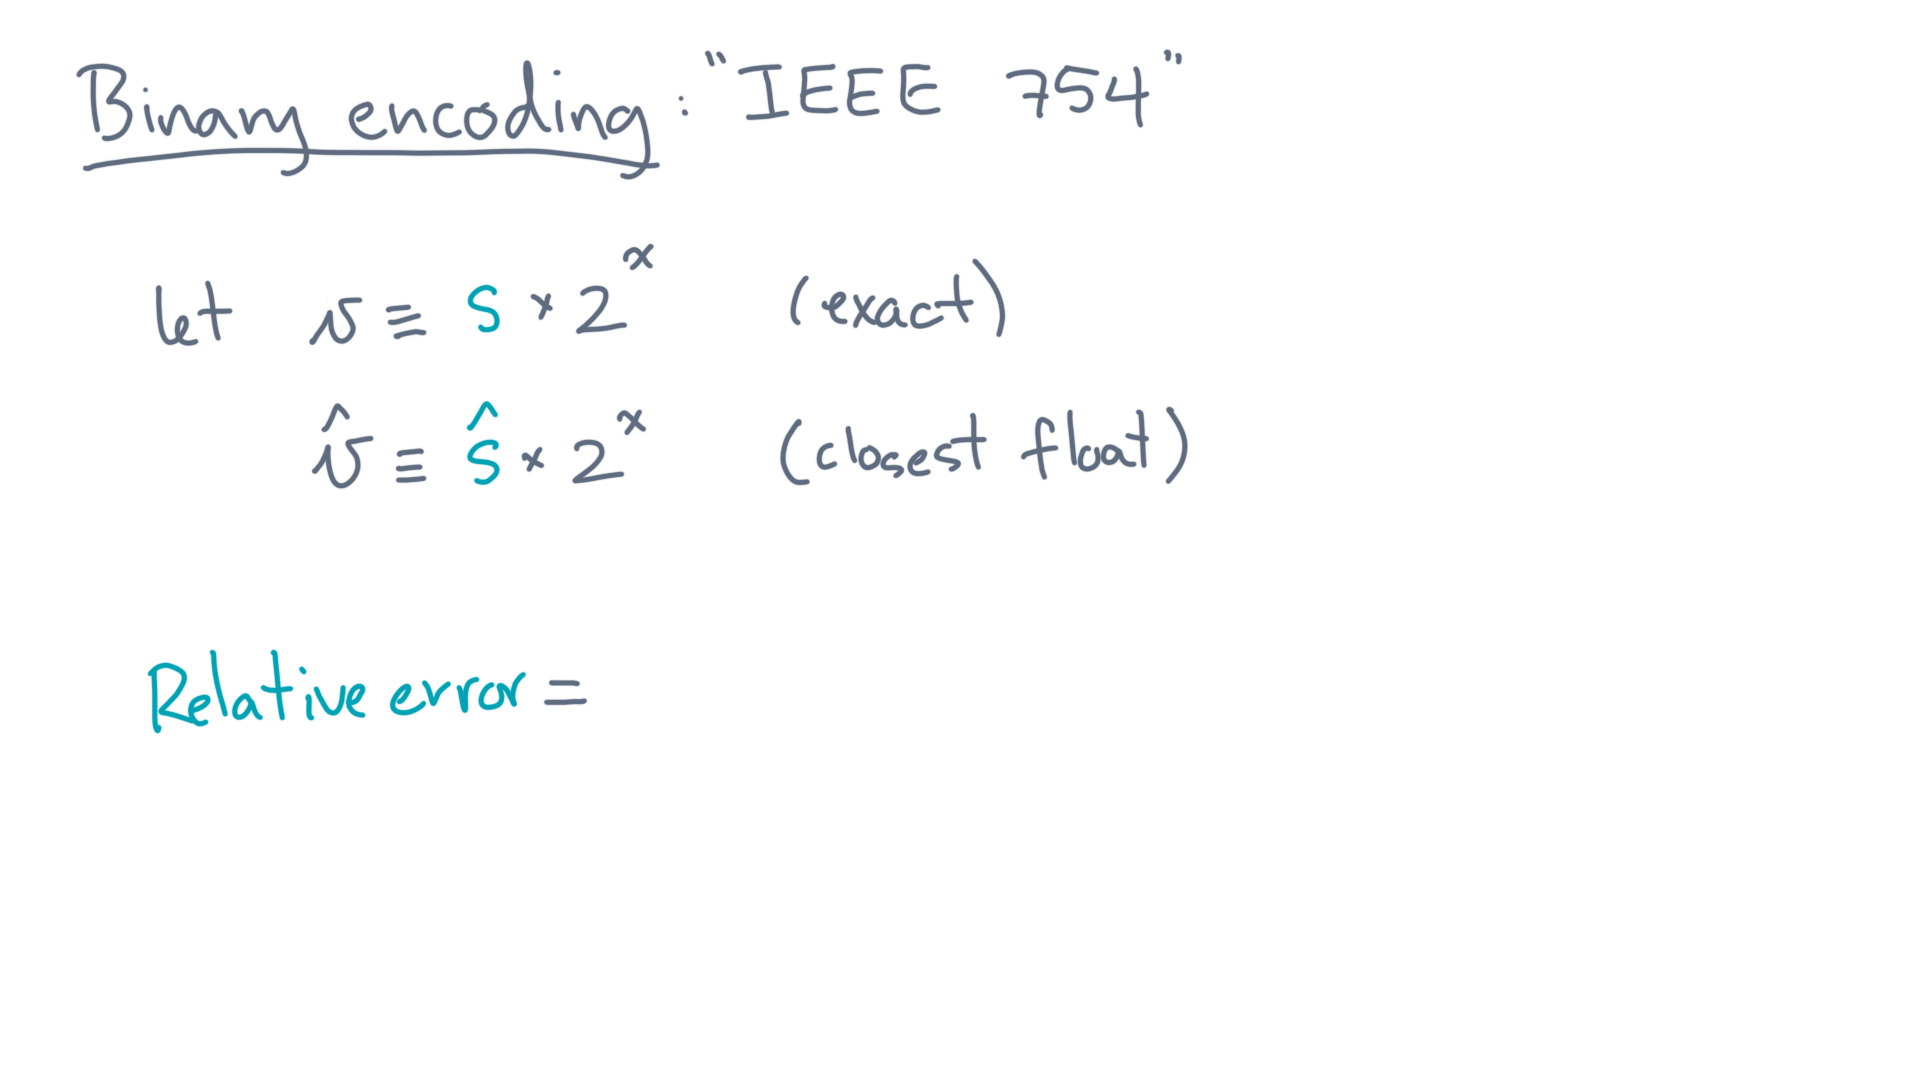 Binary encoding: "IEEE 754"
let v ≡ s × 2^x (exact)
v̂ ≡ ŝ × 2^x (closest float)
Relative error =